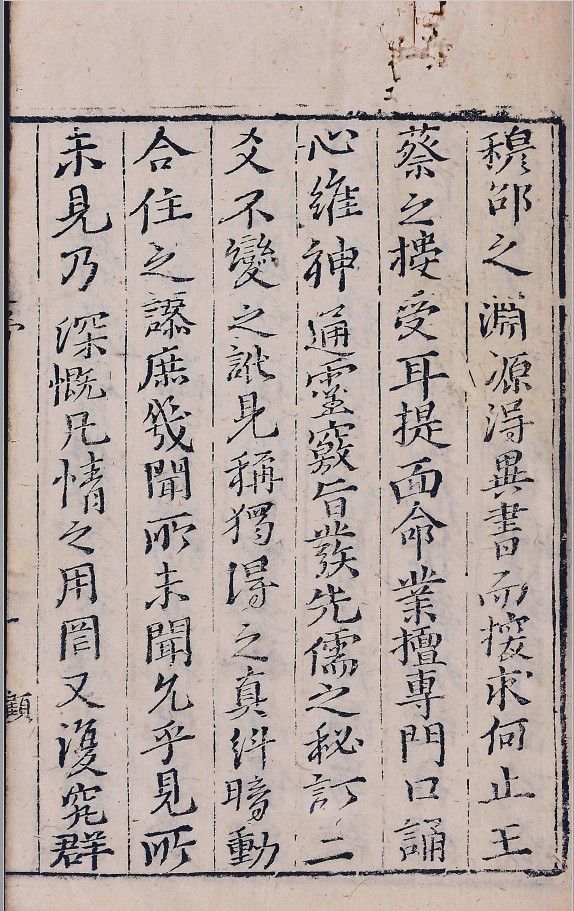 穆邵之淵源得異書而搜求何止王
蔡之授受耳提面命業擅專門口誦
心維神通靈竅旨發先儒之秘訂二
爻不變之訛見稱獨得之真糾暗動
合住之謬庶幾聞所未聞允乎見所
未見乃深慨凡情之用罔又復究群
一